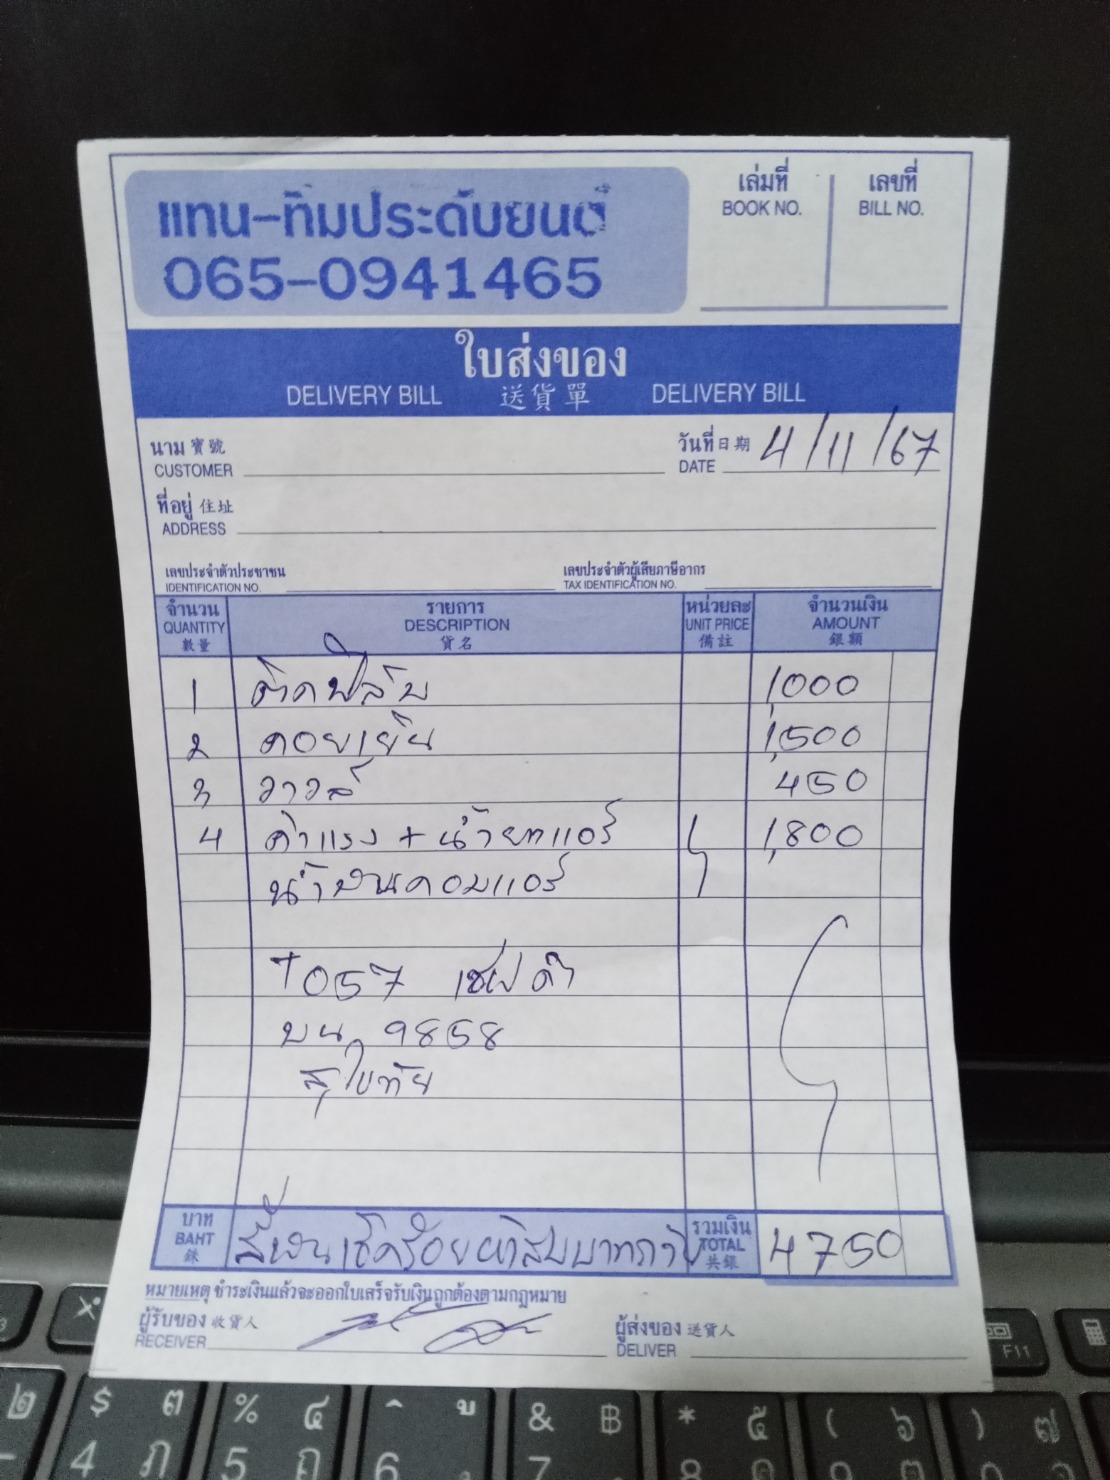 แทน-ทิมประดับยนต์
065-0941465
เล่มที่
BOOK NO.
เลขที่
BILL NO.
ใบส่งของ
DELIVERY BILL 送貨單 DELIVERY BILL
นาม 寶號
CUSTOMER
วันที่ 日期
DATE 4/11/67
ที่อยู่ 住址
ADDRESS
เลขประจำตัวประชาชน
IDENTIFICATION NO.
เลขประจำตัวผู้เสียภาษีอากร
TAX IDENTIFICATION NO.
จำนวน รายการ หน่วยละ จำนวนเงิน
QUANTITY DESCRIPTION UNIT PRICE AMOUNT
數量 貨名 備註 銀額
1 1,000
2 คอยเย็น 1,500
3 วาวล์ 450
4 ค่าแรง + น้ำยาแอร์ 1,800
น้ำมันคอมแอร์
057
บน 9858
สุโขทัย
บาท
BAHT
銖
สี่พันเจ็ดร้อยห้าสิบบาทถ้วน
รวมเงิน
TOTAL
共銀
4750
หมายเหตุ ชำระเงินแล้วจะออกใบเสร็จรับเงินถูกต้องตามกฎหมาย
ผู้รับของ 收貨人
RECEIVER
ผู้ส่งของ 送貨人
DELIVER
F11
$ ๓ % ๔ & ฿ * ๕ ( ๖ ) ๗
4 ภ 5 ถ 6 7 8 9